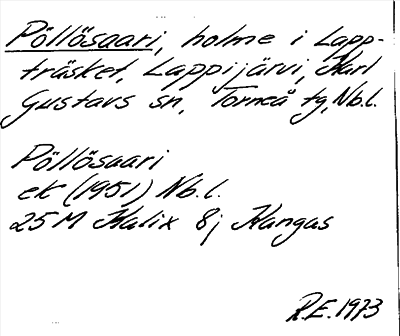 Pöllösaari, holme i Lapp-
träsket, Lappijärvi, Karl
Gustavs sn, Torneå tg, Nb.l.
Pöllösaari
ek (1951) Nb.l.
25M Kalix 8j Kangas
R.E. 1973